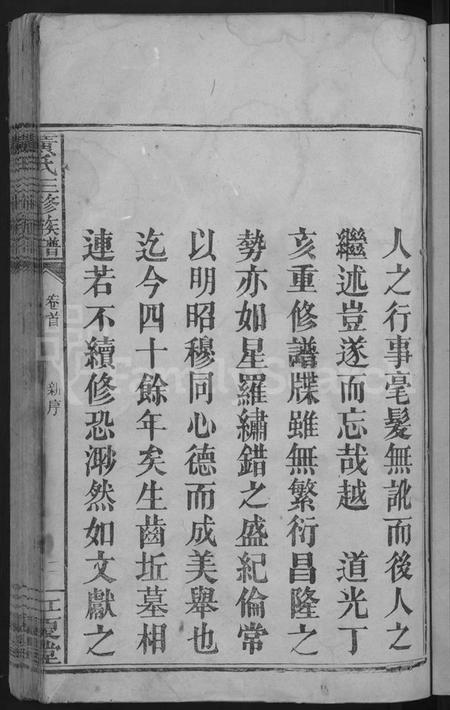 人之行事毫髮無訛而後人之
繼述豈遂而忘哉越 道光丁
亥重修譜牒雖無繁衍昌隆之
勢亦如星羅繡錯之盛紀倫常
以明昭穆同心德而成美舉也
迄今四十餘年矣生齒坵墓相
連若不續修恐渺然如文獻之
黃氏三修族譜
卷首
新序
江夏堂
FamilySearch